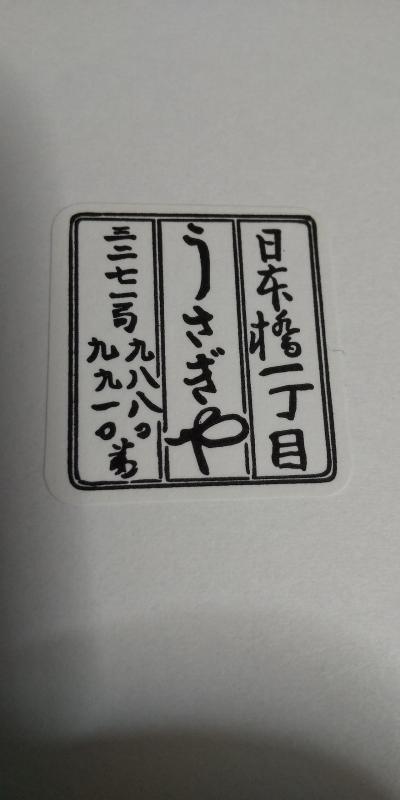 日本橋一丁目
うさぎや
三二七一局九八八〇
九九一〇番